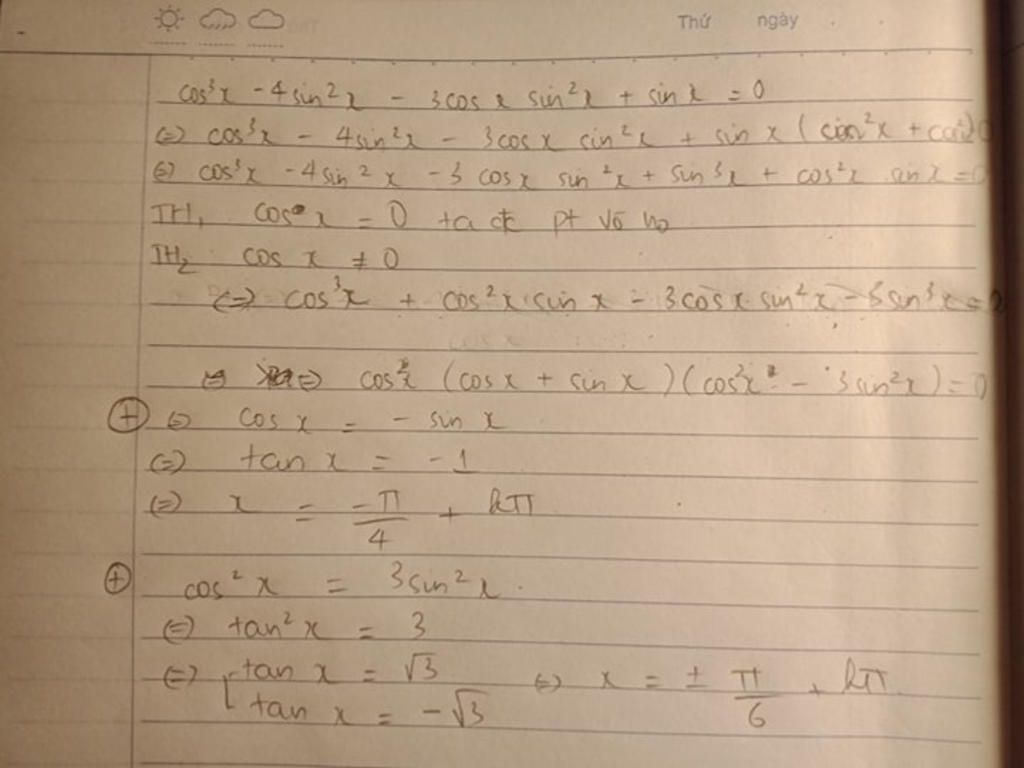 Thứ ngày
cos³x - 4sin²x - 3cos x sin²x + sin x = 0
(=) cos³x - 4sin²x - 3cos x sin²x + sin x (sin²x + cos²x) = 0
(=) cos³x - 4sin²x - 3 cosx sin²x + sin³x + cos²x sin x = 0
TH₁ cos x = 0 ta đc pt vô no
TH₂ cos x ≠ 0
(=) cos³x + cos²x sin x - 3cos x sin²x - 3sin³x = 0
(=) (cos x + sin x)(cos²x - 3sin²x) = 0
⊕ (=) cos x = - sin x
(=) tan x = -1
(=) x = -π/4 + kπ
⊕ cos²x = 3sin²x.
(=) tan²x = 3
(=) [tan x = √3 (=) x = ± π/6 + kπ
tan x = -√3